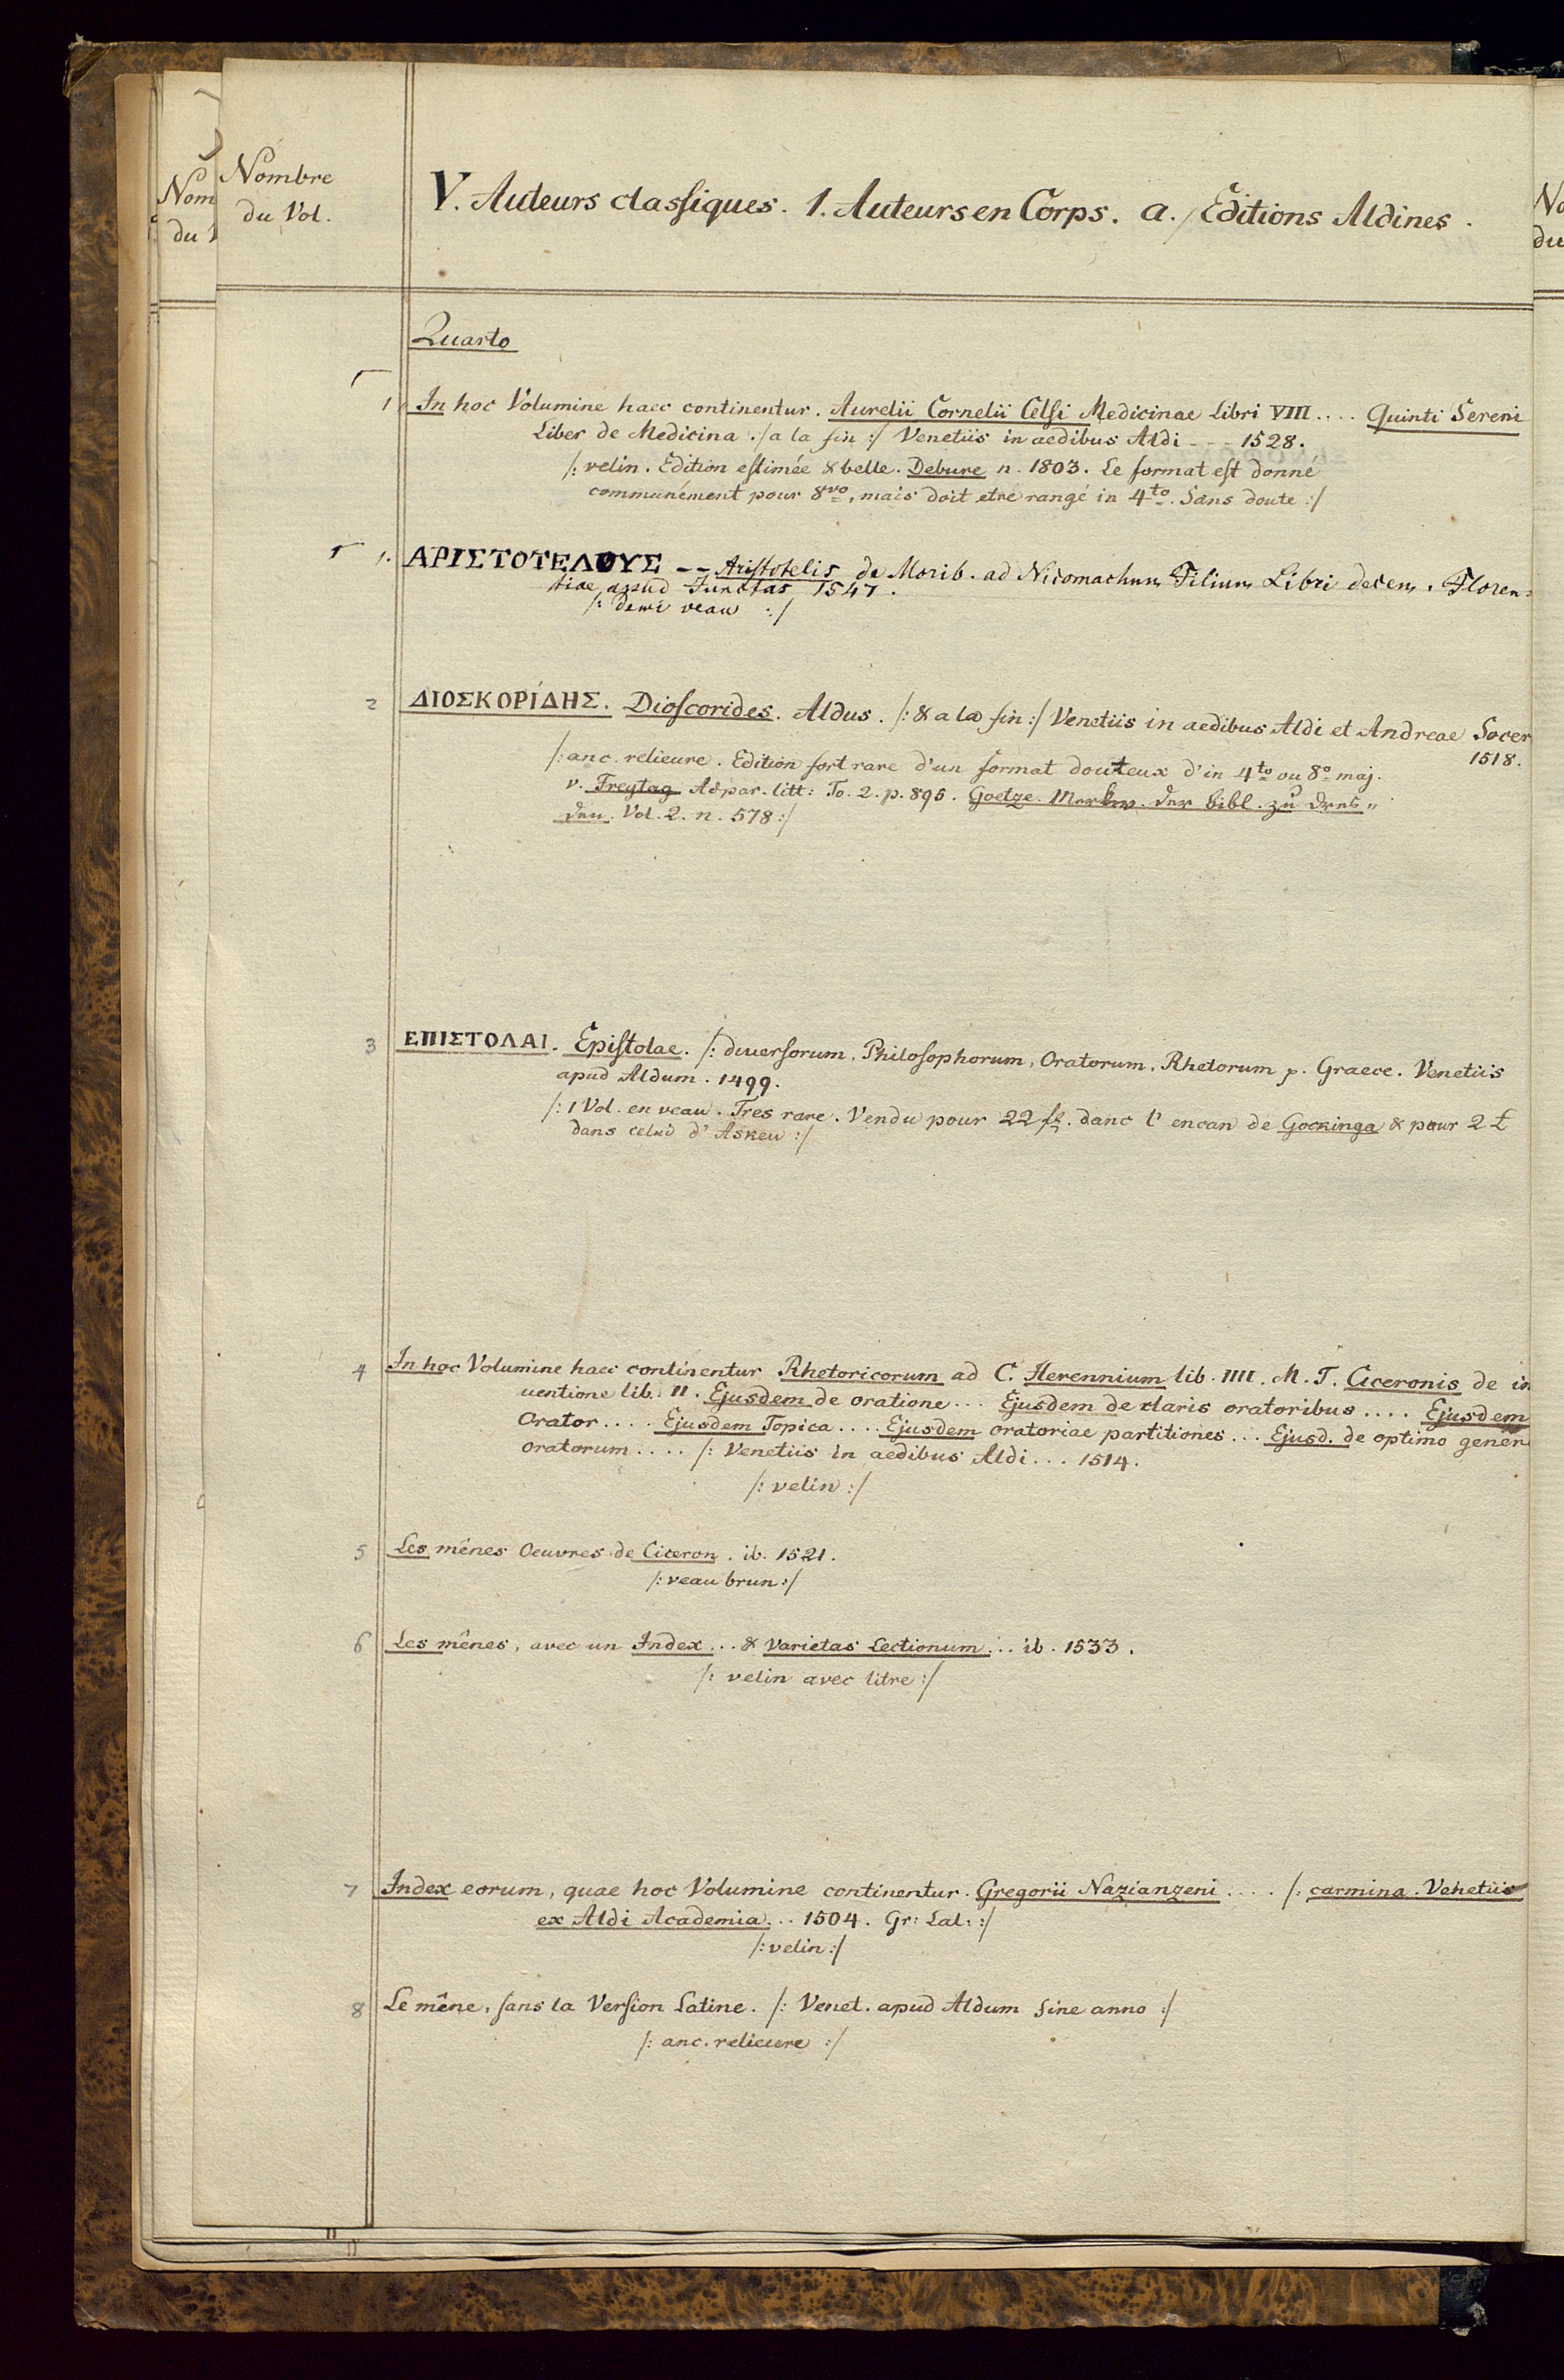 Nombre
du Vol.
V. Auteurs classiques. 1. Auteurs en Corps. a./ Editions Aldines.
Nom
du
No
du
Quarto
1 In hoc Volumine haec continentur. Aurelii Cornelii Celsi Medicinae Libri VIII.... Quinti Sereni
Liber de Medicina ./ a la fin :/ Venetiis in aedibus Aldi --- 1528.
/: velin. Edition estimée & belle. Debure n. 1803. Le format est donné
communément pour 8vo, mais doit etre rangé in 4to. Sans doute :/
1. ΑΡΙΣΤΟΤΕΛΟΥΣ -- Aristotelis de Morib. ad Nicomachum Filium Libri decem. Floren=
tiae apud Junctas 1547.
/: demi veau :/
2 ΔΙΟΣΚΟΡΊΔΗΣ. Dioscorides. Aldus. /: & a la fin :/ Venetiis in aedibus Aldi et Andreae Socer
1518.
/: anc. relieure. Edition fort rare d'un format douteux d'in 4to ou 8o maj.
v. Freytag Adpar. litt: To. 2. p. 895. Goetze. Merkw. der bibl. zu Dres„
den. Vol. 2. n. 578 :/
3 ΕΠΙΣΤΟΛΑΙ. Epistolae. /: diversorum, Philosophorum, Oratorum, Rhetorum p. Graece. Venetiis
apud Aldum. 1499.
/: 1 Vol. en veau. Tres rare. Vendu pour 22 fl. danc l'encan de Gockinga & pour 2 £
dans celui d'Askeu :/
4 In hoc Volumine haec continentur Rhetoricorum ad C. Herennium lib. IIII. M. T. Ciceronis de in
uentione lib. II. Ejusdem de oratione... Ejusdem de claris oratoribus.... Ejusdem
Orator.... Ejusdem Topica.... Ejusdem oratoriae partitiones... Ejusd. de optimo gener
oratorum.... /: Venetiis in aedibus Aldi... 1514.
/: velin :/
5 Les mênes Oeuvres de Ciceron. ib. 1521.
/: veau brun :/
6 Les mênes, avec un Index... & Varietas Lectionum... ib. 1533.
/: velin avec litre :/
7 Index eorum, quae hoc Volumine continentur. Gregorii Nazianzeni.... /: carmina. Venetiis
ex Aldi Academia... 1504. Gr: Lat: :/
/: velin :/
8 Le mêne, sans la Version Latine. /: Venet. apud Aldum sine anno :/
/: anc. relieure :/